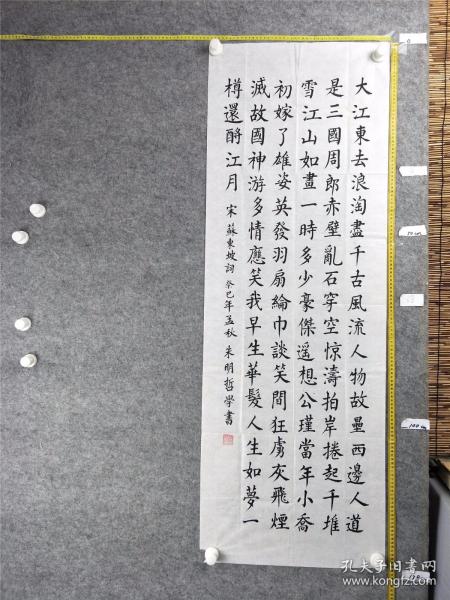 大江東去浪淘盡千古風流人物故壘西邊人道
是三國周郎赤壁亂石穿空惊濤拍岸捲起千堆
雪江山如畫一時多少豪傑遥想公瑾當年小喬
初嫁了雄姿英發羽扇綸巾談笑間狂虜灰飛煙
滅故國神游多情應笑我早生華髮人生如夢一
樽還酹江月 宋 蘇東坡詞 癸巳年孟秋 朱明哲學書
0
50cm
100cm
孔夫子旧書网
www.kongfz.com